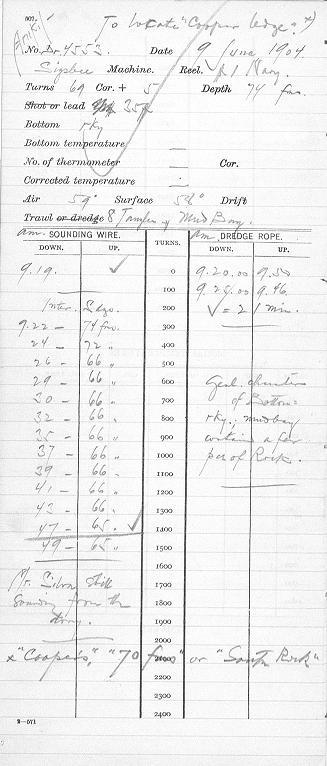 To locate "Cooper ledge" x)
No. Dr. 4553. Date 9 June 1904.
Sigsbee Machine. Reel. #1 Navy.
Turns 69 Cor. + 5 Depth 74 fms.
Shot or lead 35#
Bottom rky
Bottom temperature
No. of thermometer Cor.
Corrected temperature
Air 59° Surface Drift
Trawl or dredge 8' Tanner & Mud Bag.
am. SOUNDING WIRE. TURNS. am DREDGE ROPE.
DOWN. UP. DOWN. UP.
9.19. ✓ 0 9.20.00 9.50
100 9.25.00 9.46
Inter. Sdgs. 200 ✓ = 21 min.
9.22 — 74 fms. 300
24 — 72 " 400
26 — 66 " 500
29 — 66 " 600 Genl. character
30 — 66 " 700 of Bottom =
32 — 66 " 800 rky.; mudbag
35 — 66 " 900 contain a few
37 — 66 " 1000 pcs of Rock.
39 — 66 " 1100
41 — 66 " 1200
43 — 66 " 1300
47 — 65 " ✓ 1400
49 — 65 " 1500
1600
Mr. Silva still 1700
sounding from the 1800
dory. 1900
2000
x "Cooper's," "70 fms" or "South Rock"
2200
2300
2400
2—571